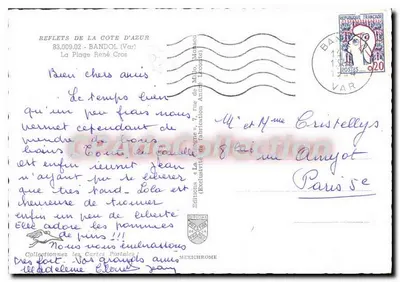 REFLETS DE LA COTE D'AZUR
83.005.02 - BANDOL (Var)
La Plage René Cros
Bien chers amis
Le temps bien
qu'un peu frais nous
permet cependant de
prendre de bons
bains
est enfin réuni Jean
n'ayant pu se libérer
que très tard - Lola est
heureuse de trouver
enfin un peu de liberté
Elle adore les pommes
de pins !!!
Nous nous embrassons
très fort. Vos grands amis
Madeleine Jean
Collectionnez les Cartes Postales
MEXICHROME
REPUBLIQUE FRANCAISE
POSTES
0,20
VAR
Mr et Mme Cristellys
8 rue Amyot
Paris 5e